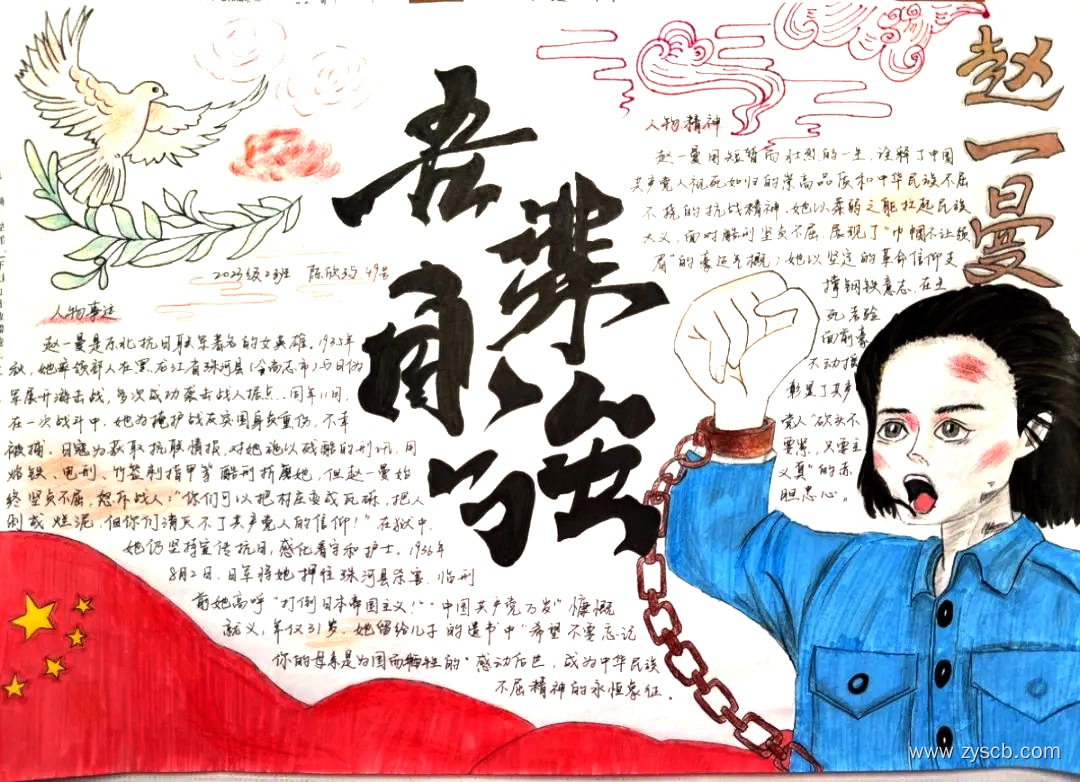 吾辈自强
赵一曼
2023级23班 49号
人物事迹
赵一曼是东北抗日联军著名的女英雄。1935年
秋,她率领部人在黑右江省珠河县(今尚志市)与日伪
军展开游击战,多次成功袭击战人据点…同年11月,
在一次战斗中,她为掩护战友突围身负重伤,不幸
被捕。日寇为获取抗联情报,对她施以残酷的刑讯,用
烙铁、电刑、竹签刺指甲等酷刑折磨她,但赵一曼始
终坚贞不屈,怒斥战人:“你们可以把村庄变成瓦砾,把人
剁成烂泥,但你们消灭不了共产党人的信仰!”在狱中,
她仍坚持宣传抗日,感化看守和护士。1936年
8月2日,日军将她押往珠河县杀害,临刑
前她高呼“打倒日本帝国主义!”“中国共产党万岁”慷慨
就义,年仅31岁。她留给儿子的遗书中“希望不要忘记
你的母亲是为国而牺牲的”感动后世,成为中华民族
不屈精神的永恒象征。
人物精神
赵一曼用短暂而壮烈的一生,诠释了中国
共产党人视死如归的崇高品质和中华民族不屈
不挠的抗战精神,她以柔弱之躯扛起民族
大义,面对酷刑坚贞不屈,展现了“巾帼不让须
眉”的豪迈气概;她以坚定的革命信仰支
撑钢铁意志,在生
死考验
面前毫
不动摇
彰显了共产
党人“砍头不
要紧,只要主
义真”的赤
胆忠心。
www.zyscb.com